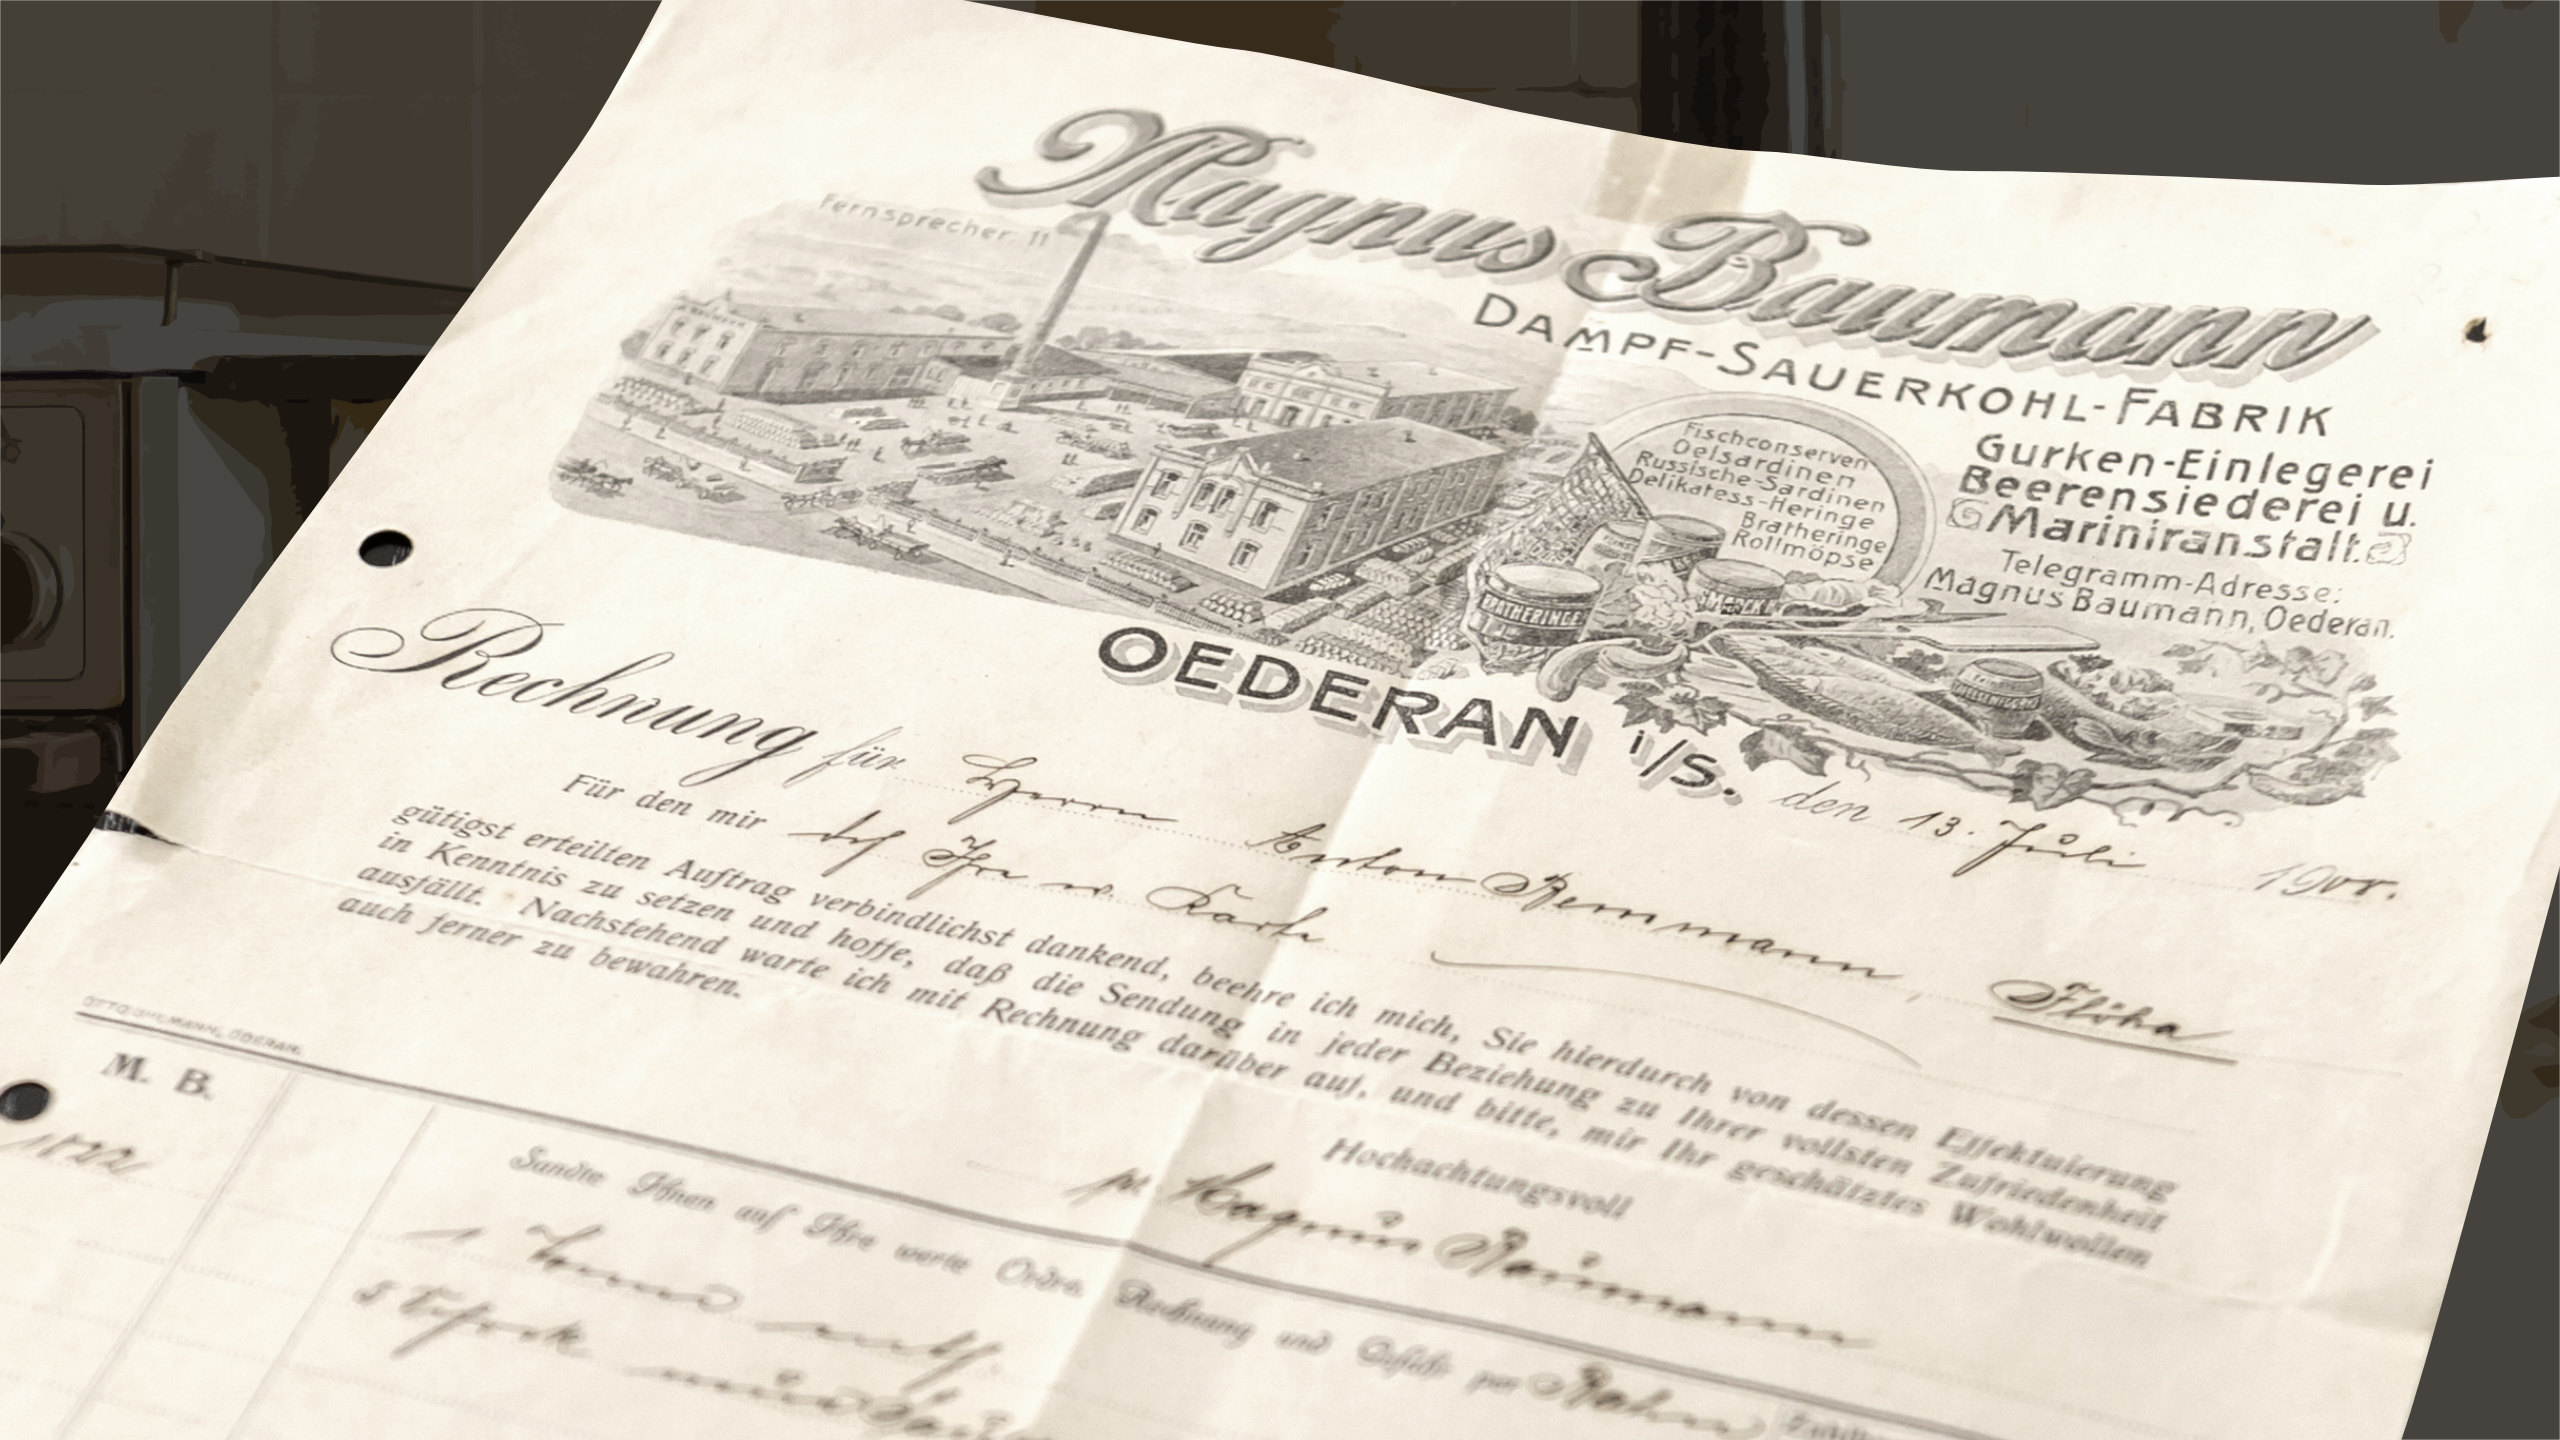 Magnus Baumann
Fernsprecher: 11
DAMPF-SAUERKOHL-FABRIK
Fischconserven
Oelsardinen
Russische-Sardinen
Delikatess-Heringe
Bratheringe
Rollmöpse
Gurken-Einlegerei
Beerensiederei u.
Mariniranstalt.
Telegramm-Adresse:
Magnus Baumann, Oederan.
BRATHERINGE
OEDERAN i/S.
den 13. Juli
Rechnung für Herrn Anton Remmann, Flöha
Für den mir
gütigst erteilten Auftrag verbindlichst dankend, beehre ich mich, Sie hierdurch von dessen Effektuierung
in Kenntnis zu setzen und hoffe, daß die Sendung in jeder Beziehung zu Ihrer vollsten Zufriedenheit
ausfällt. Nachstehend warte ich mit Rechnung darüber auf, und bitte, mir Ihr geschätztes Wohlwollen
auch ferner zu bewahren.
Hochachtungsvoll
Magnus Baumann
M. B.
Sandte Ihnen auf Ihre werte Ordre, Rechnung und Gefahr per Bahn